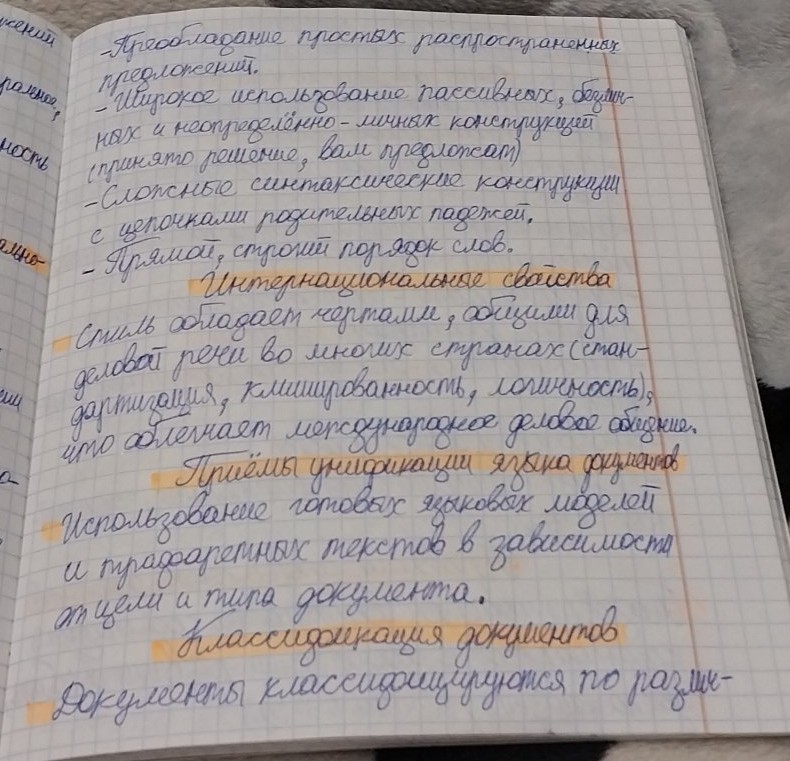 жений
-Преобладание простых распространенных
предложений.
-Широкое использование пассивных, безлич-
ных и неопределённо-личных конструкций
(принято решение, вам предложат)
-Сложные синтаксические конструкции
с цепочками родительных падежей.
- Прямой, строгий порядок слов.
ность
ально-
Интернациональные свойства
Стиль обладает чертами, общими для
деловой речи во многих странах (стан-
дартизация, клишированность, логичность),
что облегчает международное деловое общение.
Приёмы унификации языка документов
Использование готовых языковых моделей
и трафаретных текстов в зависимости
от цели и типа документа.
Классификация документов
Документы классифицируются по различ-